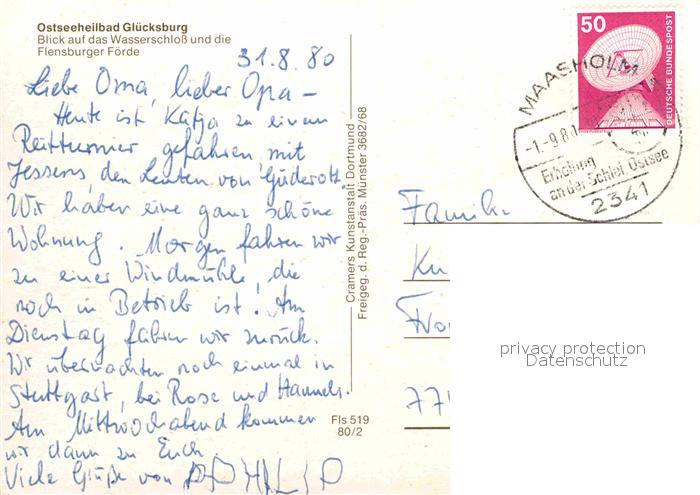 Ostseeheilbad Glücksburg
Blick auf das Wasserschloß und die
Flensburger Förde
31.8.80
Liebe Oma, lieber Opa –
Heute ist Katja zu einem
Reitturnier gefahren, mit
Jessens, den Leuten von Güderott.
Wir haben eine ganz schöne
Wohnung. Morgen fahren wir
zu einer Windmühle, die
noch in Betrieb ist! Am
Dienstag fahren wir zurück.
Wir übernachten noch einmal in
Stuttgart, bei Rose und Hannes.
Am Mittwochabend kommen
wir dann zu Euch.
Viele Grüße von
Cramers Kunstanstalt Dortmund
Freigeg. d. Reg.-Präs. Münster 3682/68
Fls 519
80/2
50
DEUTSCHE BUNDESPOST
MAASHOLM
-1.-9.80
Erholung
an der Schlei, Ostsee
2341
Familie
Ku
77
privacy protection
Datenschutz